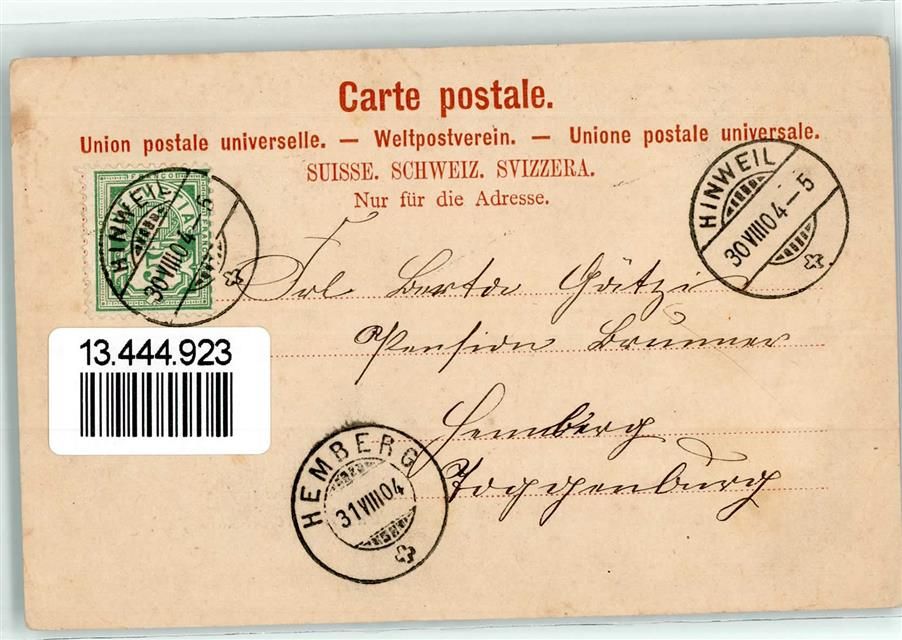 Carte postale.
Union postale universelle. — Weltpostverein. — Unione postale universale.
SUISSE. SCHWEIZ. SVIZZERA.
Nur für die Adresse.
FRANCO
HINWEIL
30 VIII 04 – 5
HINWEIL
30 VIII 04 – 5
Frl Berta Götzi
Pension Brunner
Hemberg
Toggenburg
13.444.923
HEMBERG
31 VIII 04